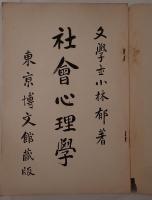 文學士小林郁著
社會心理學
東京博文館蔵版